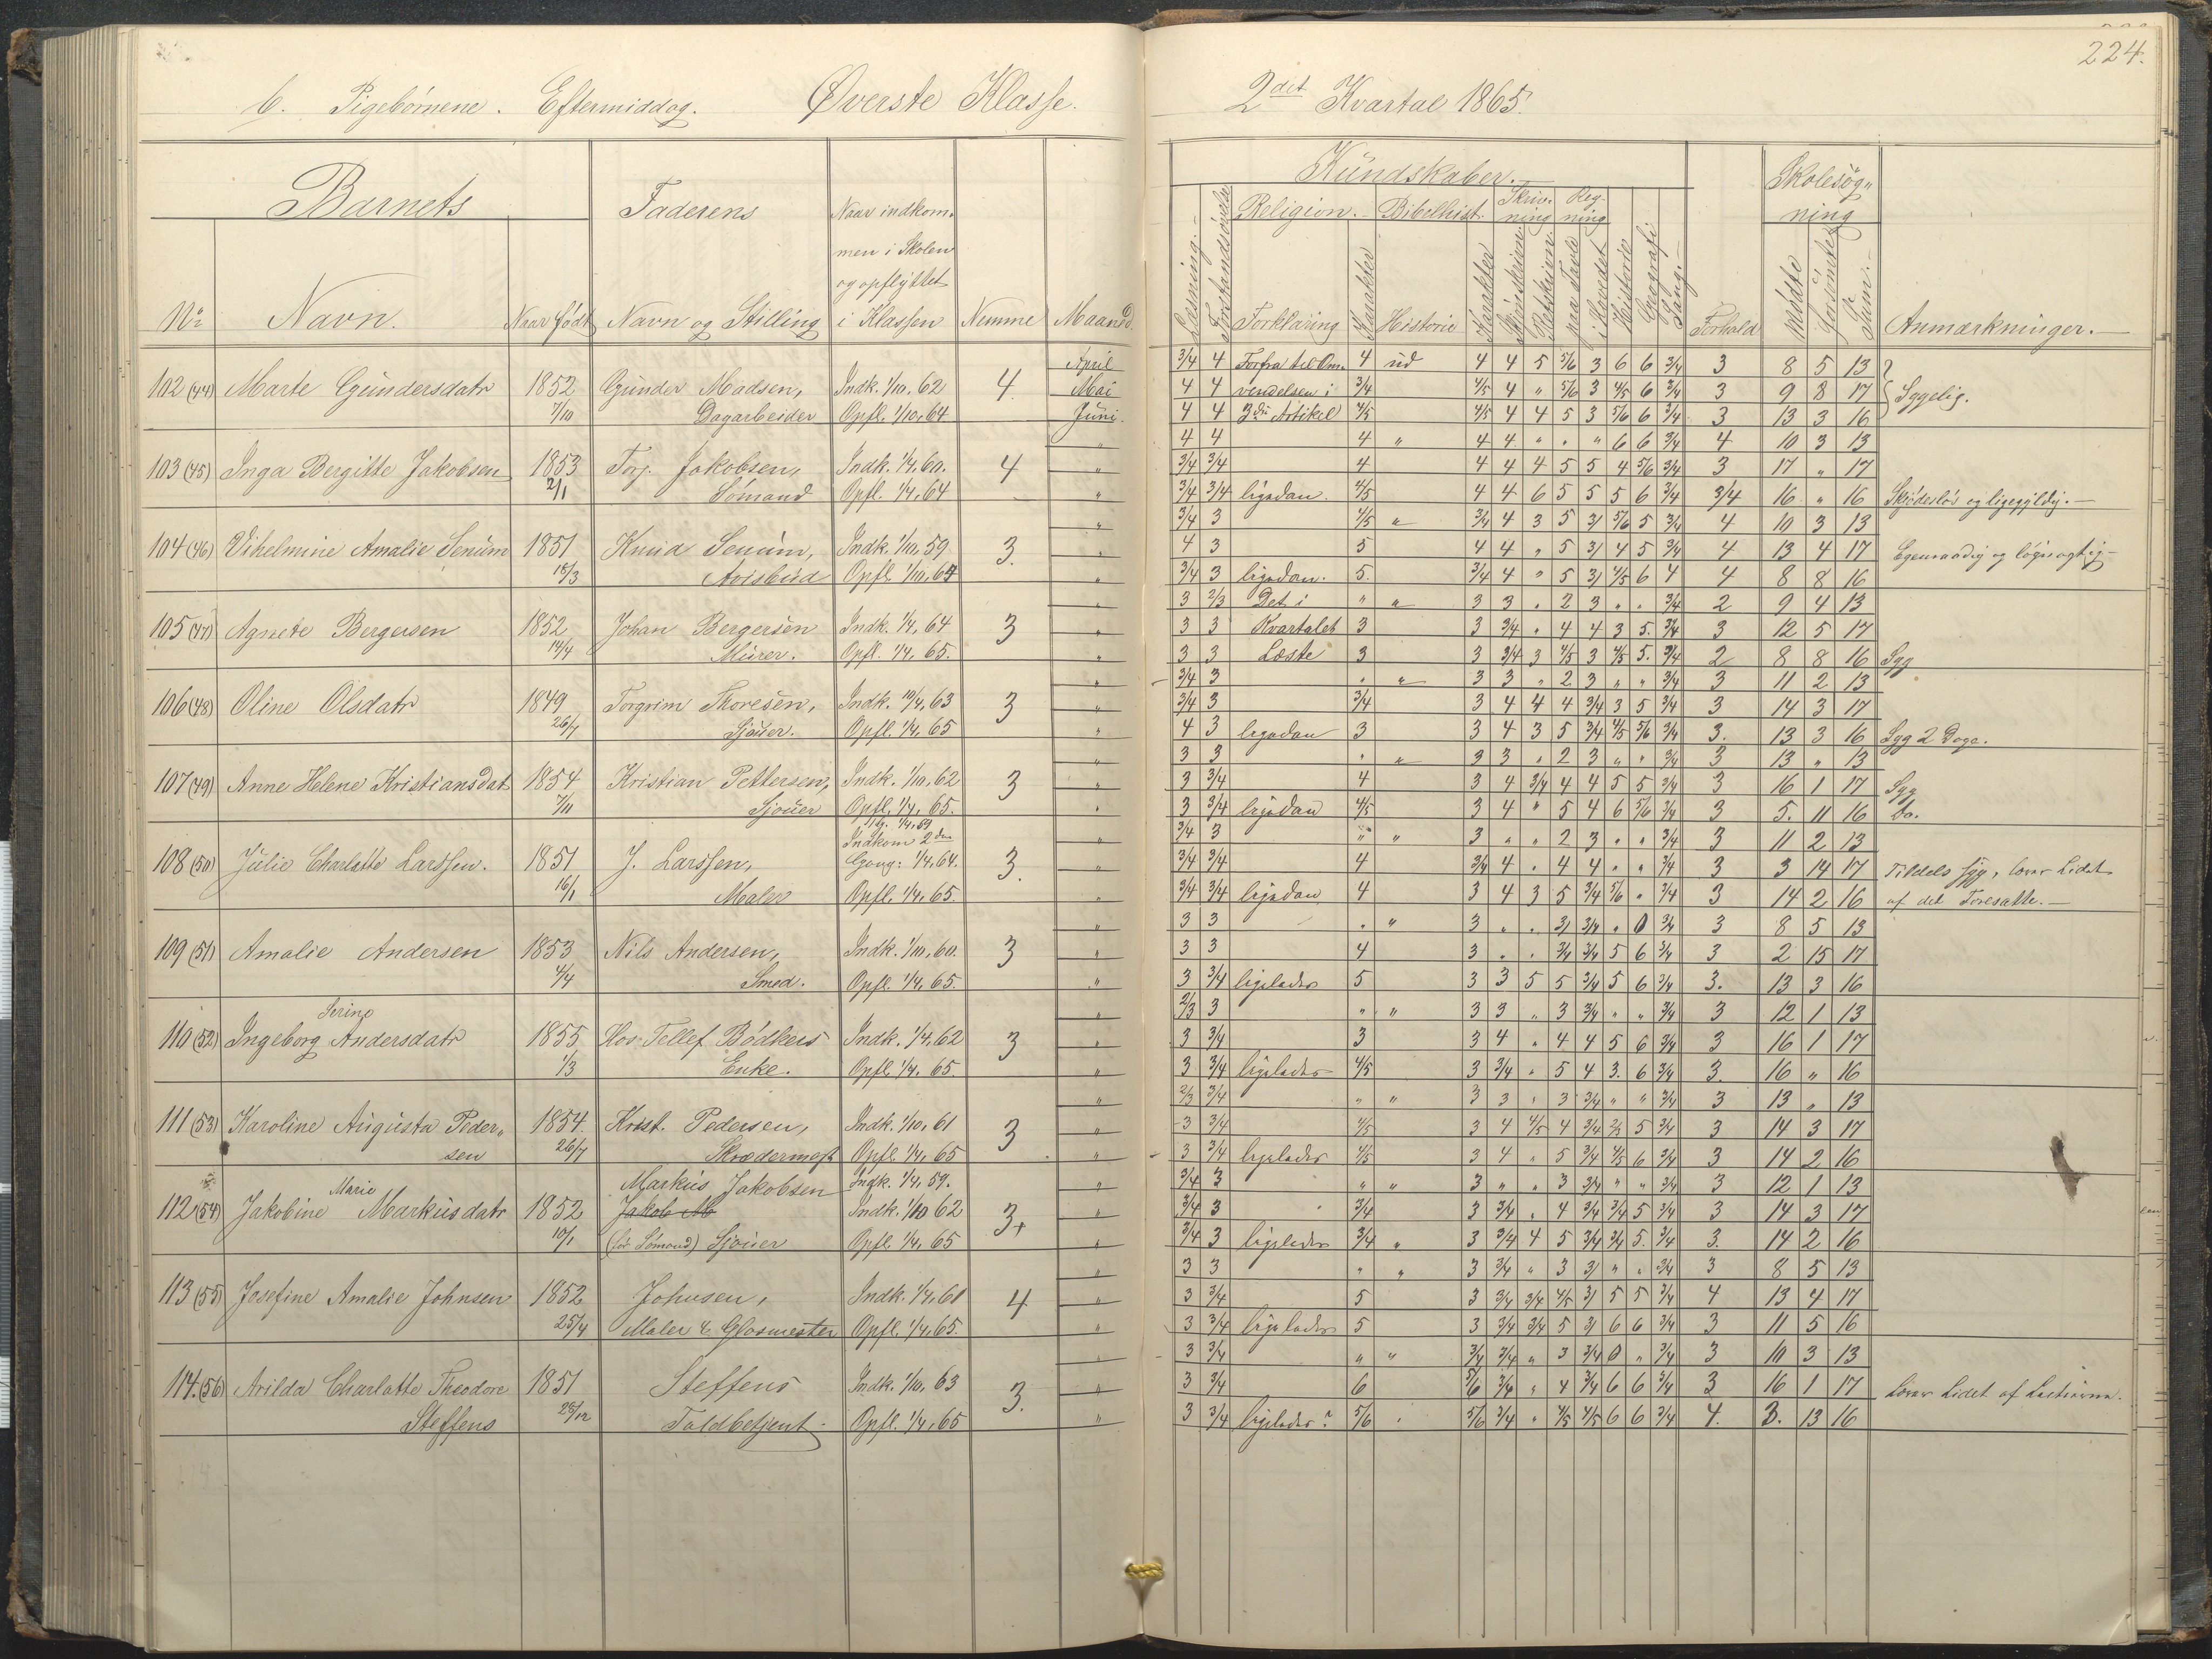 224.
6. Pigebørnene. Eftermiddag. Øverste Klasse. 2det Kvartal 1865.
Barnets Faderens Naar indkommen i Skolen og opflyttet i Klassen Nemme Maaned.
No Navn. Naar født Navn og Stilling
Kundskaber. Skolesøgning
Læsning. Forstandsøvelse Religion. Bibelhist. Skrivning Regning
Forklaring Karakter Historie Karakter Skjönskrivn. Retskrivn. paa Tavle i Hovedet Historie Geografi Sang. Forhold mødte forsömte Sum. Anmærkninger.
102 (44) Marte Gundersdatr 1852 7/10 Gunder Madsen, Dagarbeider Indk. 1/10, 62 Opfl. 1/10, 64 4
April 3/4 4 Forfra til Om- 4 ud 4 4 5 5/6 3 6 6 3/4 3 8 5 13
Mai 4 4 vendelsen i 3/4 4/5 4 " 5/6 3 4/5 6 3/4 3 9 8 17 Sygelig.
Juni. 4 4 3die Artikel 4/5 4/5 4 4 5 3 5/6 6 3/4 3 13 3 16
103 (45) Inga Bergitte Jakobsen 1853 2/1 Torj. Jakobsen, Sømand Indk. 1/4, 60. Opfl. 1/4, 64 4
" 4 4 4 " 4 4 " " " 6 6 3/4 4 10 3 13
" 3/4 3/4 4 4 4 4 5 5 4 5/6 3/4 3 17 " 17
" 3/4 3/4 ligedan 4/5 4 4 6 5 5 5 6 3/4 3/4 16 " 16 Skjødesløs og ligegyldig.
104 (46) Vihelmine Amalie Senum 1851 18/3 Knud Senum, Avisbud Indk. 1/10, 59 Opfl. 1/10, 64 3.
" 3/4 3 4/5 " 3/4 4 3 5 3/ 5/6 5 3/4 4 10 3 13
" 4 3 5 4 4 " 5 3/ 4 5 3/4 4 13 4 17 Egenraadig og løgnagtig
" 3/4 3 ligedan. 5. 3/4 4 " 5 3/ 4/5 6 4 4 8 8 16
105 (47) Agnete Bergersen 1852 14/4 Johan Bergersen Murer. Indk. 1/4, 64 Opfl. 1/4, 65. 3
" 3 2/3 Det i " " 3 3 " 2 3 " " 3/4 2 9 4 13
" 3 3 Kvartalet 3 3 3/4 " 4 4 3 5. 3/4 3 12 5 17
" 3 3 Læste 3 3 3/4 3 4/5 3 4/5 5. 3/4 2 8 8 16 Syg
106 (48) Oline Olsdatr 1849 26/7 Torgrim Thoresen, Sjouer. Indk. 19/4, 63 Opfl. 1/4, 65 3
" 3/4 3 " " 3 3 " 2 3 " " 3/4 3 11 2 13
" 3/4 3 3/4 3 4 4 4 3/4 3 5 3/4 3 14 3 17
" 4 3 ligedan 3 3 4 3 5 3/4 4/5 5/6 3/4 3. 13 3 16 Syg 2 Dage.
107 (49) Anne Helene Kristiansdat 1854 7/11 Kristian Pettersen, Sjouer Indk. 1/10, 62 Opfl. 1/4, 65. 3
" 3 3 " " 3 3 " 2 3 " " 3/4 3 13 " 13
" 3 3/4 4 3 4 3/4 4 4 5 5 3/4 3 16 1 17 Syg
" 3 3/4 ligedan 4/5 3 4 " 5 4 6 5/6 3/4 3 5. 11 16 do.
108 (50) Julie Charlotte Larssen. 1851 16/1 J. Larssen, Maler Indkom 2den Gang: 1/4, 64. Opfl. 1/4, 65. 3.
" 3/4 3 " " 3 " " 2 3 " " 3/4 3 11 2 13
" 3/4 3/4 4 3/4 4 " 4 4 " " 3/4 3 3 14 17 Tildels syg, lærer Lidet
" 3/4 3/4 ligedan 4 3 4 3 5 3/4 5/6 " 3/4 3 14 2 16 af det Foresatte.
109 (51) Amalie Andersen 1853 4/4 Nils Andersen, Smed. Indk. 1/10, 60. Opfl. 1/4, 65. 3
" 3 3 " " 3 " " 3/ 3/4 " 0 3/4 3 8 5 13
" 3 3 4 3 " " 3/4 3/4 5 6 3/4 3 2 15 17
" 3 3/4 ligeledes 5 3 3 5 5 3/4 5 6 3/4 3. 13 3 16
110 (52) Ingeborg Serine Andersdatr 1855 1/3 Hos Tellef Bödkers Enke. Indk. 1/4, 62 Opfl. 1/4, 65. 3
" 2/3 3 " " 3 3 " 3 3/4 " " 3/4 3 12 1 13
" 3 3/4 3 3 4 " 4 4 5 6 3/4 3 16 1 17
" 3 3/4 ligeledes 4/5 3 3/4 " 5 4 3. 6 3/4 3. 16 " 16
111 (53) Karoline Augusta Pedersen 1854. 26/7 Krist. Pedersen, Skrædermest Indk. 1/10, 61 Opfl. 1/4, 65 3
" 2/3 3/4 " " 3 3 " 3 3/4 " " 3/4 3 13 " 13
" 3 3/4 4/5 3 4 4/5 4 3/4 2/3 5 3/4 3 14 3 17
" 3 3/4 ligeledes 4/5 3 4 " 5 3/4 4/5 6 3/4 3 14 2 16
112 (54) Jakobine Marie Markusdatr 1852 10/1 Markus Jakobsen Jakob M (før Sømand) Sjouer Indk. 1/4, 59. Indk. 1/10 62 Opfl. 1/4, 65 3+
" 3/4 3 " " 3 " " 3 3/4 " " 3/4 3 12 1 13
" 3/4 3 3/4 3 3/4 " 4 3/4 3/4 5 3/4 3 14 3 17
" 3/4 3 ligeledes 3/4 " 3 3/4 4 5 3/4 3/4 5. 3/4 3. 14 2 16
113 (55) Josefine Amalie Johnsen 1852 25/4 Johnsen, Maler & Glasmester Indk. 1/4, 61 Opfl. 1/4, 65. 4
" 3 3 " " 3 3/4 " 3 3/ " " 3/4 3 8 5 13
" 3 3/4 5 3 3/4 3/4 4/5 3/ 5 5 3/4 4 13 4 17
" 3 3/4 ligeledes 5 3 3/4 3/4 5 3/ 6 6 3/4 3 11 5 16
114. (56) Arilda Charlotte Theodore Steffens 1851 28/12 Steffens Toldbetjent Indk. 1/10, 63 Opfl. 1/4, 65 3.
" 3 3/4 " " 3/4 3/4 " 3 3/4 0 " 3/4 3 10 3 13
" 3 3/4 6 5/6 3/4 " 4 3/4 6 6 3/4 3 16 1 17 Lærer Lidet af Lectierne.
" 3 3/4 ligeledes? 5/6 " 5/6 3/4 " 4/5 4/5 6 6 3/4 4. 3. 13 16